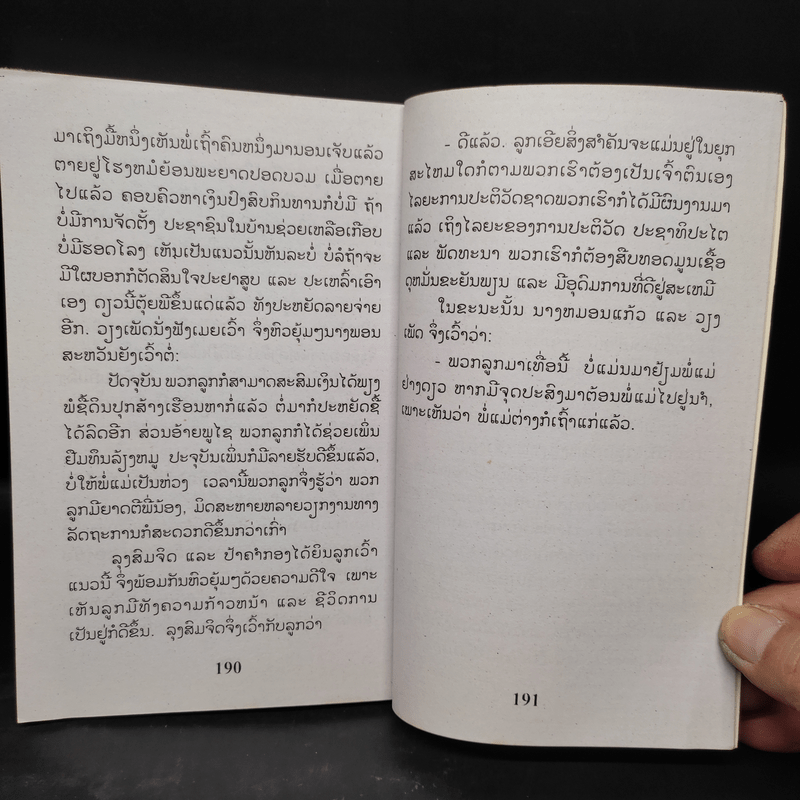 ມາເຖິງມື້ຫນຶ່ງເຫັນພໍ່ເຖົ້າຄົນຫນຶ່ງມານອນເຈັບແລ້ວ
ຕາຍຢູ່ໂຮງຫມໍຍ້ອນພະຍາດປອດບວມ ເມື່ອຕາຍ
ໄປແລ້ວ ຄອບຄົວຫາເງິນປົງສົບກິນທານກໍ່ບໍ່ມີ ຖ້າ
ບໍ່ມີການຈັດຕັ້ງ ປະຊາຊົນໃນບ້ານຊ່ວຍເຫລືອເກືອບ
ບໍ່ມີຮອດໂລງ ເຫັນເປັນແນວນັ້ນຫັນລະບໍ່ ບໍ່ລໍຖ້າຈະ
ມີໃຜບອກກໍຕັດສິນໃຈປະຢາສູບ ແລະ ປະເຫລົ້າເອົາ
ເອງ ດຽວນີ້ຕຸ້ຍພີຂຶ້ນແດ່ແລ້ວ ທັງປະຫຍັດລາຍຈ່າຍ
ອີກ. ວຽງເພັດນັ່ງຟັງເມຍເວົ້າ ຈຶ່ງຫົວຍຸ້ມໆນາງພອນ
ສະຫວັນຍັງເວົ້າຕໍ່:
ປັດຈຸບັນ ພວກລູກກໍສາມາດສະສົມເງິນໄດ້ພຽງ
ພໍຊື້ດິນປຸກສ້າງເຮືອນຫາກໍ່ແລ້ວ ຕໍ່ມາກໍປະຫຍັດຊື້
ໄດ້ລົດອີກ ສ່ວນອ້າຍພູໄຊ ພວກລູກກໍໄດ້ຊ່ວຍເພິ່ນ
ຢືມທຶນລ້ຽງຫມູ ປະຈຸບັນເພິ່ນກໍມີລາຍຮັບດີຂຶ້ນແລ້ວ,
ບໍ່ໃຫ້ພໍ່ແມ່ເປັນຫ່ວງ ເວລານີ້ພວກລູກຈຶ່ງຮູ້ວ່າ ພວກ
ລູກມີຍາດຕີພີ່ນ້ອງ, ມິດສະຫາຍຫລາຍວຽກງານທາງ
ລັດຖະການກໍສະດວກດີຂຶ້ນກວ່າເກົ່າ
ລຸງສົມຈິດ ແລະ ປ້າຄຳກອງໄດ້ຍິນລູກເວົ້າ
ແນວນີ້ ຈຶ່ງພ້ອມກັນຫົວຍຸ້ມໆດ້ວຍຄວາມດີໃຈ ເພາະ
ເຫັນລູກມີທັງຄວາມກ້າວຫນ້າ ແລະ ຊີວິດການ
ເປັນຢູ່ກໍດີຂຶ້ນ. ລຸງສົມຈິດຈຶ່ງເວົ້າກັບລູກວ່າ
190
- ດີແລ້ວ. ລູກເອີຍສິ່ງສຳຄັນຈະແມ່ນຢູ່ໃນຍຸກ
ສະໄຫມໃດກໍຕາມພວກເຮົາຕ້ອງເປັນເຈົ້າຕົນເອງ
ໄລຍະການປະຕິວັດຊາດພວກເຮົາກໍໄດ້ມີຜົນງານມາ
ແລ້ວ ເຖິງໄລຍະຂອງການປະຕິວັດ ປະຊາທິປະໄຕ
ແລະ ພັດທະນາ ພວກເຮົາກໍຕ້ອງສືບທອດມູນເຊື້ອ
ດຸຫມັ່ນຂະຍັນພຽນ ແລະ ມີອຸດົມການທີ່ດີຢູ່ສະເຫມີ
ໃນຂະນະນັ້ນ ນາງຫມອນແກ້ວ ແລະ ວຽງ
ເພັດ ຈຶ່ງເວົ້າວ່າ:
- ພວກລູກມາເທື່ອນີ້ ບໍ່ແມ່ນມາຢ້ຽມພໍ່ແມ່
ຢ່າງດຽວ ຫາກມີຈຸດປະສົງມາຕ້ອນພໍ່ແມ່ໄປຢູ່ນຳ,
ເພາະເຫັນວ່າ ພໍ່ແມ່ຕ່າງກໍເຖົ້າແກ່ແລ້ວ.
191